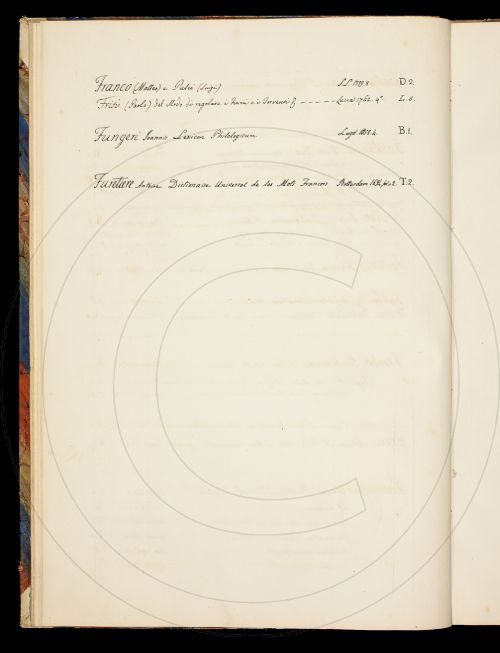 Franco (Matteo) e Pulci (Luigi) S.L. 1759. 8. D.2.
Frisi (Paolo) Del Modo di regolare i Fiumi e i Torrenti &. - - - - - Lucca 1762. 4° L.5.
Fungeri Joannis Lexicon Philologicum Lugd. 4. B.1.
Furetiere Antoine Dictionaire Universel de les Mots Francois Rotterdam T.2.